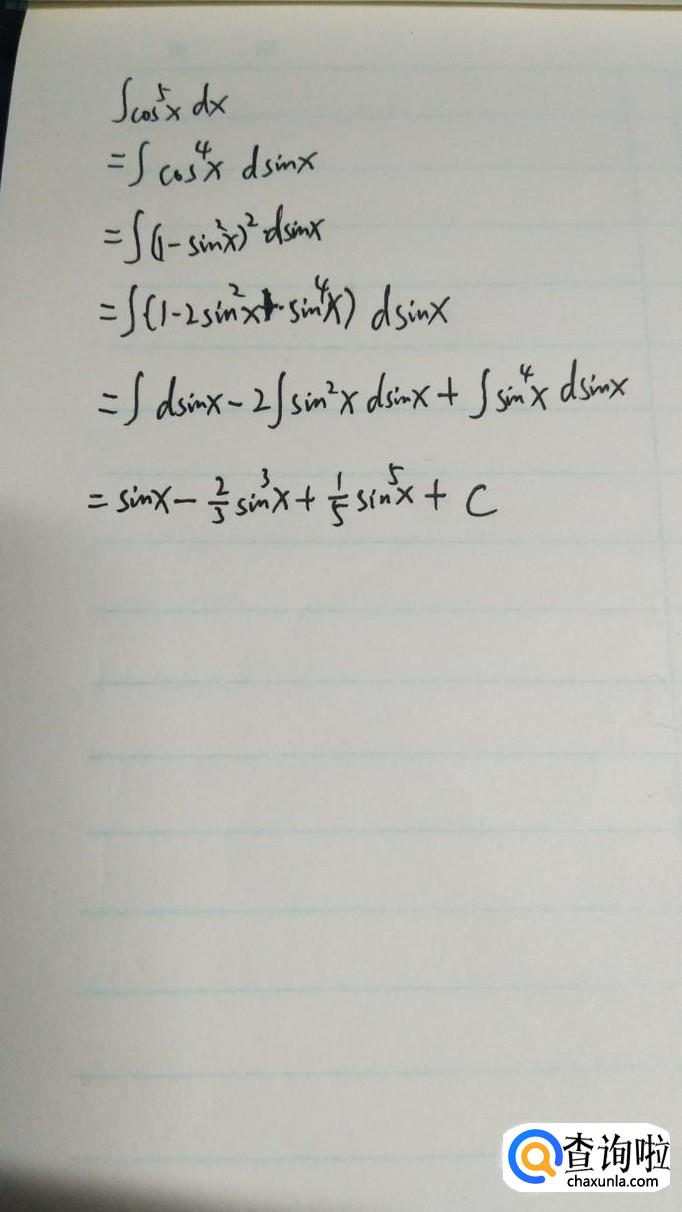 ∫cos⁵x dx
=∫cos⁴x dsinx
=∫(1-sin²x)²dsinx
=∫(1-2sin²x+sin⁴x) dsinx
=∫dsinx-2∫sin²x dsinx+∫sin⁴x dsinx
=sinx-2/3 sin³x+1/5 sin⁵x+C
查询啦
chaxunla.com